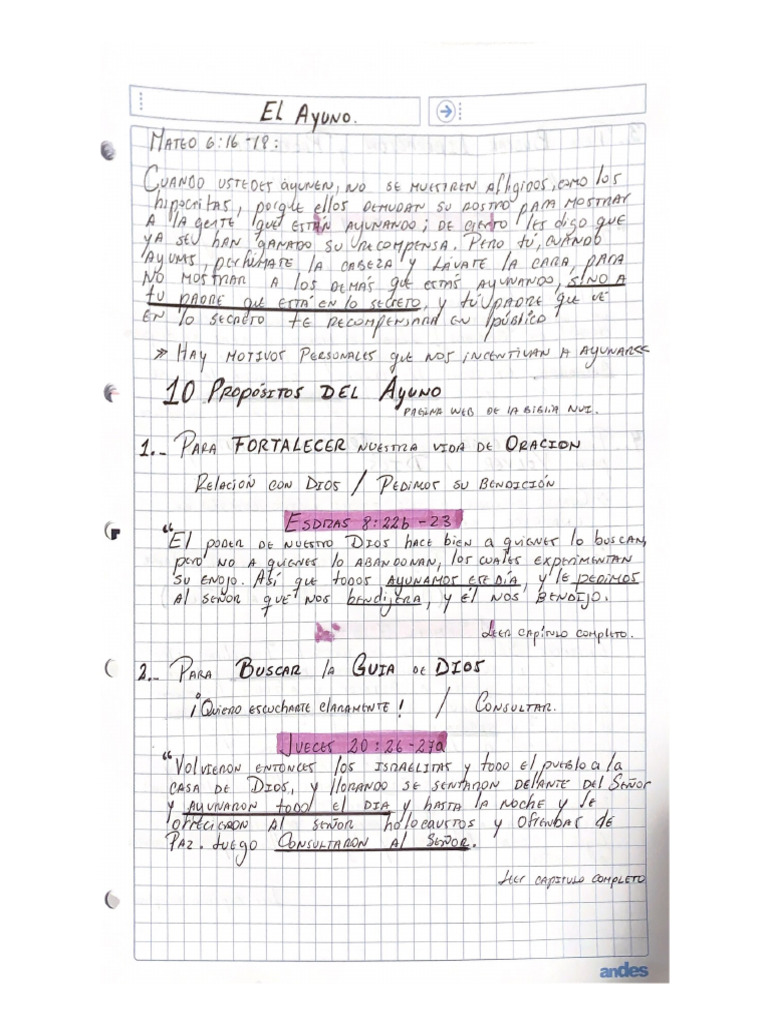 El Ayuno.
Mateo 6:16-18:
Cuando ustedes ayunen, no se muestren afligidos, como los
hipócritas, porque ellos demudan su rostro para mostrar
a la gente que están ayunando; de cierto les digo que
ya se han ganado su recompensa. Pero tú, cuando
ayunes, perfúmate la cabeza y lávate la cara, para
no mostrar a los demás que estás ayunando, sino a
tu padre que está en lo secreto, y tú padre que ve
en lo secreto te recompensará en público
» Hay motivos personales que nos incentivan a ayunarse
10 Propósitos del Ayuno
Página web de la Biblia NVI.
1.- Para Fortalecer nuestra vida de Oracion
Relación con Dios / Pedimos su bendición
Esdras 8:22b-23
"El poder de nuestro Dios hace bien a quienes lo buscan,
pero no a quienes lo abandonan, los cuales experimentan
su enojo. Así que todos ayunamos ese día, y le pedimos
al señor que nos bendijera, y él nos bendijo.
Leer capítulo completo.
2.- Para Buscar la Guia de Dios
¡Quiero escucharte claramente! / Consultar.
Jueces 20:26-27a
"Volvieron entonces los israelitas y todo el pueblo a la
casa de Dios, y llorando se sentaron delante del Señor
y ayunaron todo el dia y hasta la noche y le
ofrecieron al señor holocaustos y ofrendas de
Paz. Luego consultaron al Señor.
Leer capitulo completo
andes